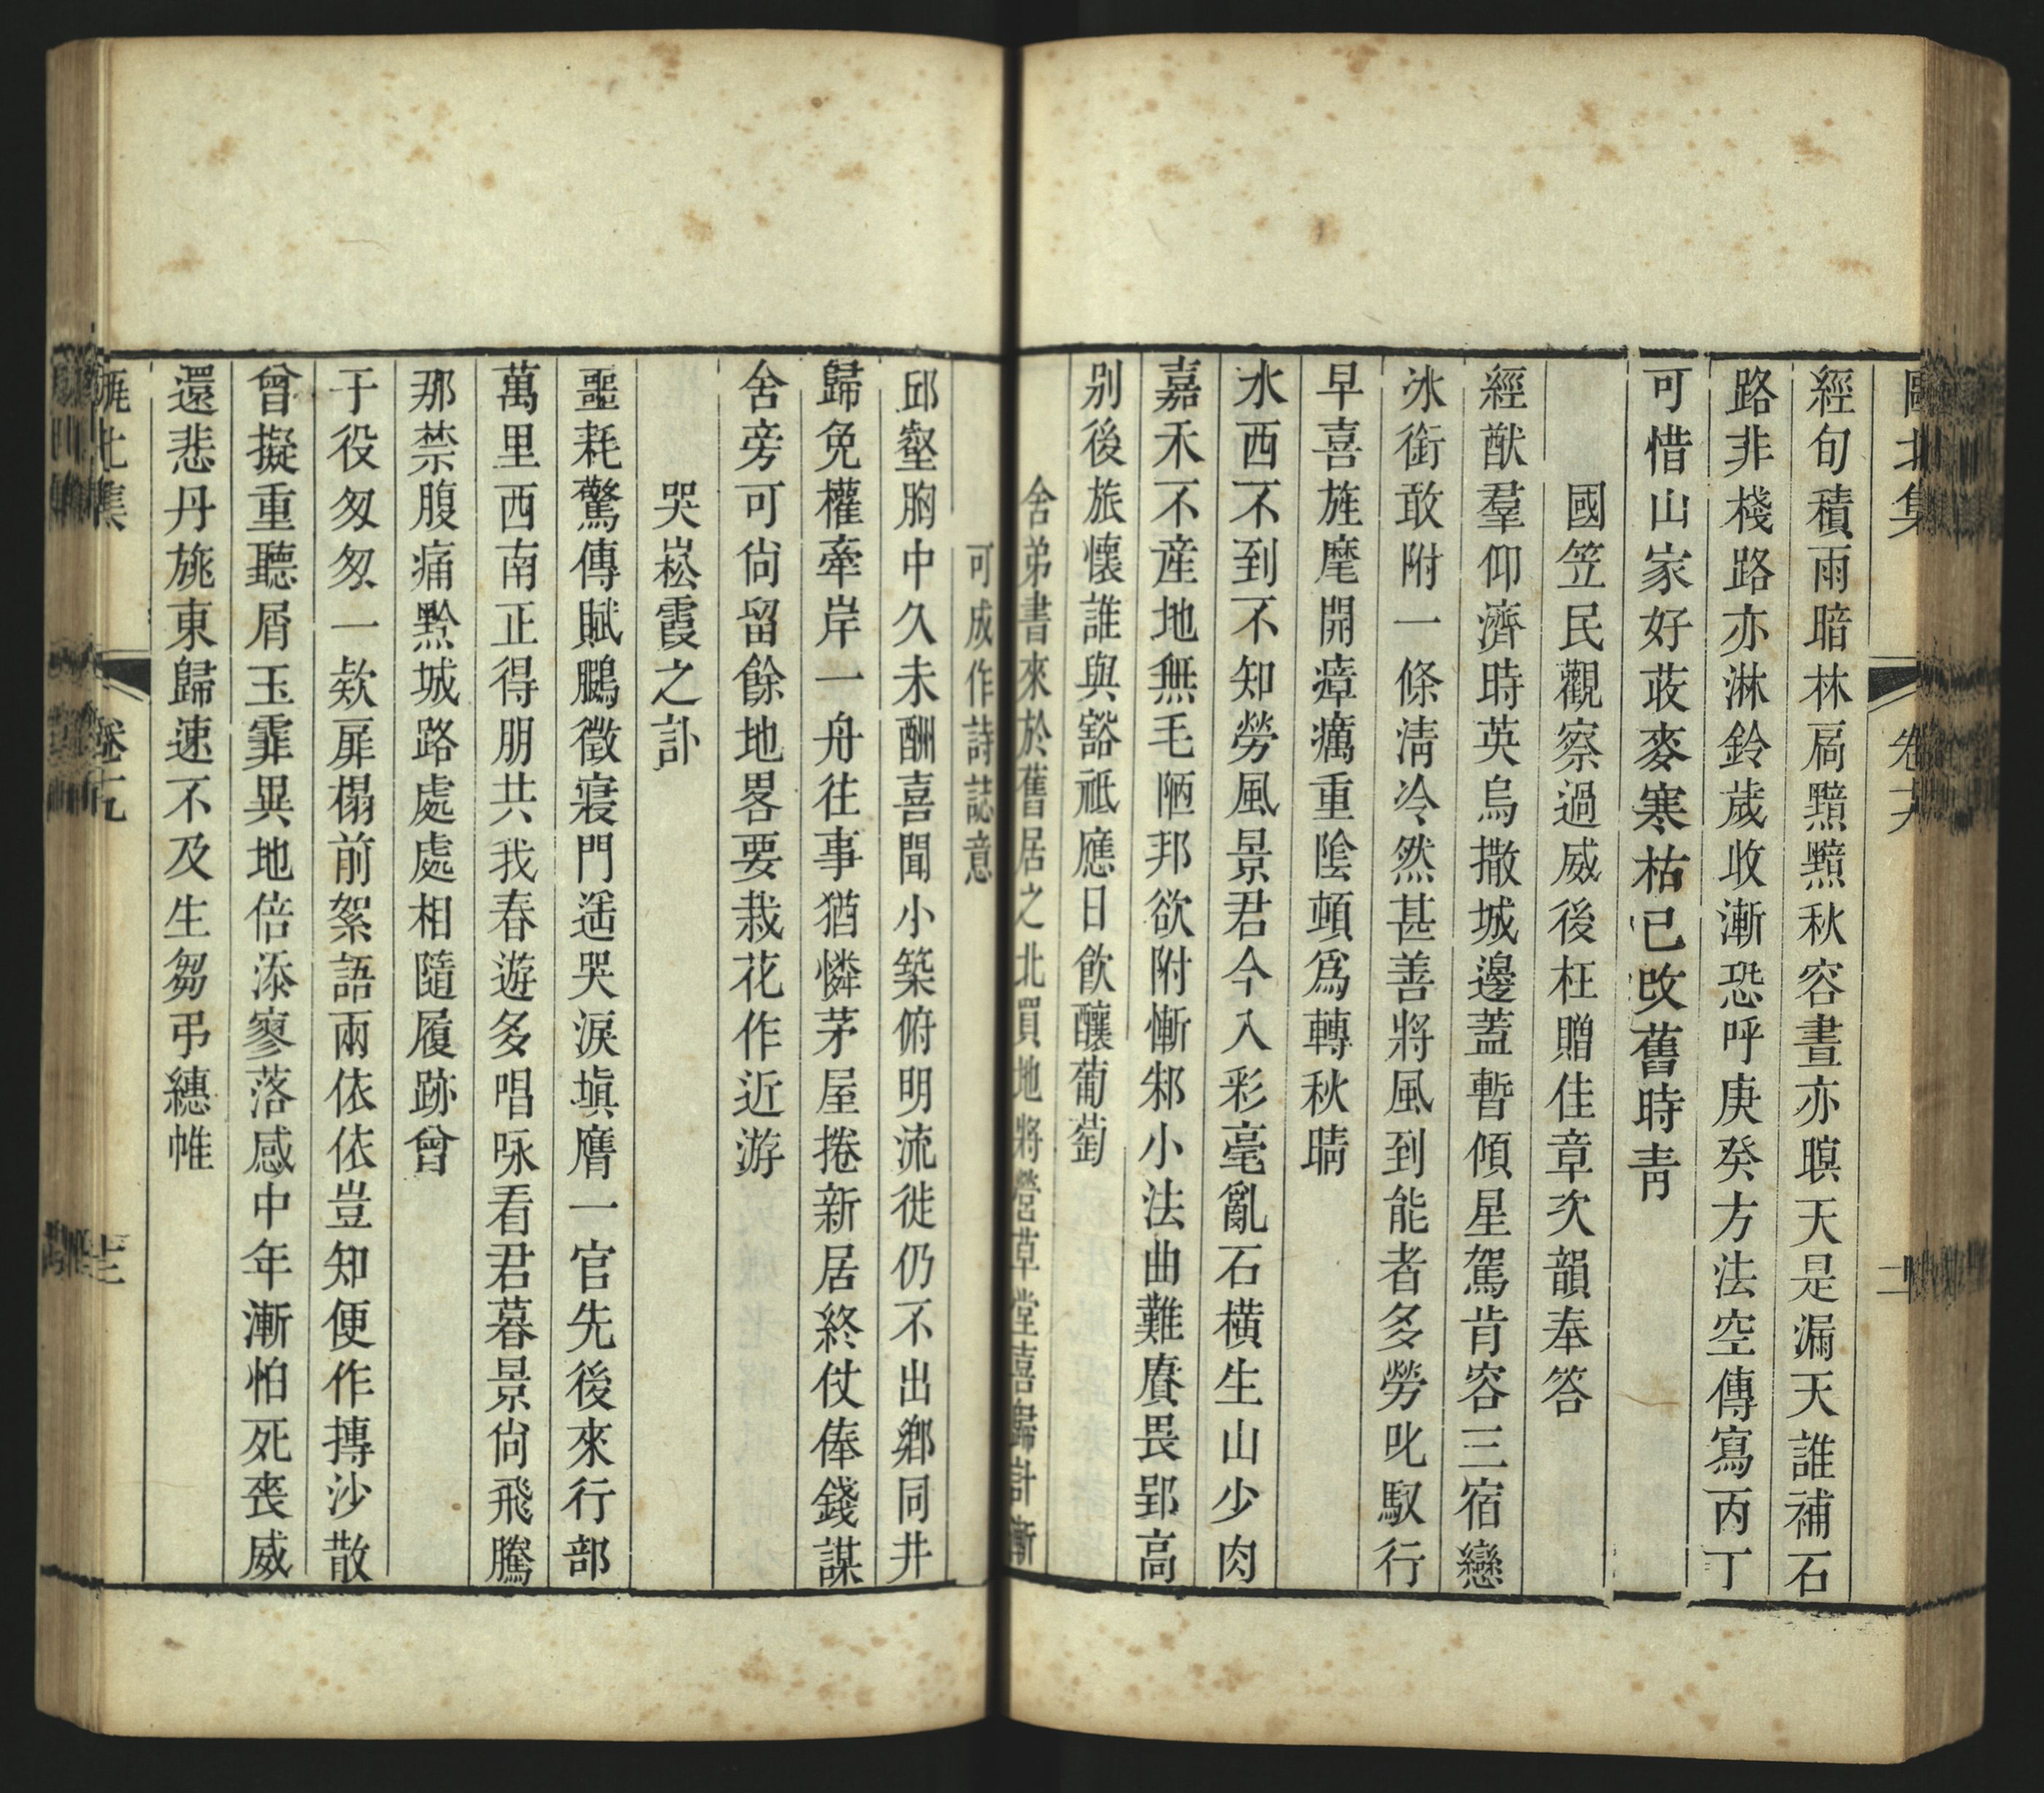 甌北集 卷十九 二
經旬積雨暗林扃黯黯秋容晝亦暝天是漏天誰補石
路非棧路亦淋鈴歲收漸恐呼庚癸方法空傳寫丙丁
可惜山家好蔌麥寒枯已改舊時靑
國笠民觀察過威後枉贈佳章次韻奉答
經猷羣仰濟時英烏撒城邊蓋暫傾星駕肯容三宿戀
冰銜敢附一條淸冷然甚善將風到能者多勞叱馭行
早喜旌麾開瘴癘重陰頓爲轉秋晴
水西不到不知勞風景君今入彩毫亂石橫生山少肉
嘉禾不産地無毛陋邦欲附慚邾小法曲難賡畏郢高
別後旅懷誰與豁祗應日飮釀葡萄
舍弟書來於舊居之北買地將營草堂喜歸計漸
可成作詩誌意
邱壑胸中久未酬喜聞小築俯明流徙仍不出鄕同井
歸免權牽岸一舟往事猶憐茅屋捲新居終仗俸錢謀
舍旁可尙留餘地畧要栽花作近游
哭崧霞之訃
噩耗驚傳賦鵩徵寢門遙哭淚塡膺一官先後來行部
萬里西南正得朋共我春遊多唱咏看君暮景尙飛騰
那禁腹痛黔城路處處相隨履跡曾
于役匆匆一欵扉榻前絮語兩依依豈知便作摶沙散
曾擬重聽屑玉霏異地倍添寥落感中年漸怕死喪威
還悲丹旐東歸速不及生芻弔繐帷
甌北集 卷十九 十三